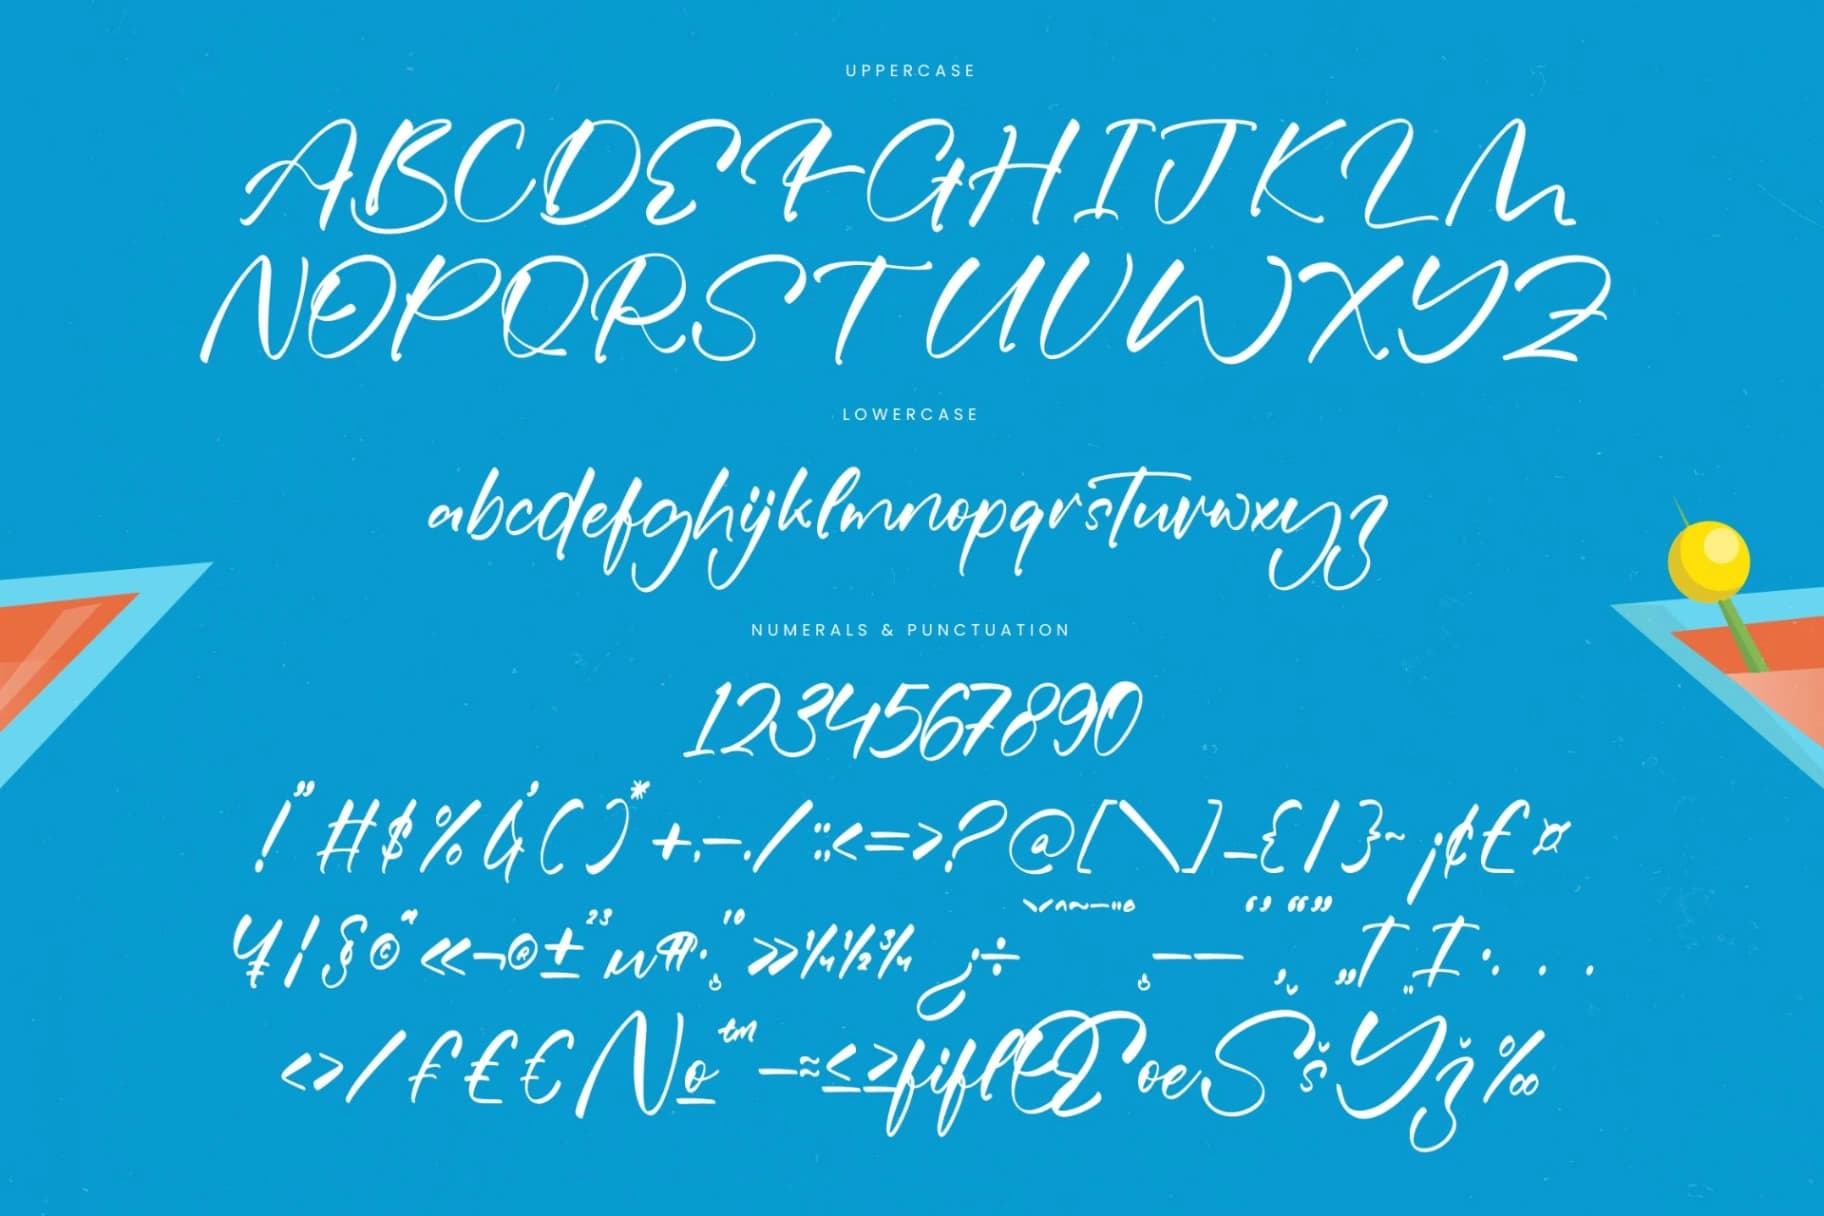 UPPERCASE
ABCDEFGHIJKLM
NOPQRSTUVWXYZ
LOWERCASE
abcdefghijklmnopqrstuvwxyz
NUMERALS & PUNCTUATION
1234567890
!"#$%&'()*+,-./:;<=>?@[\]_{|}~¡¢£¤
¥¦§©ª«¬®±²³µ¶·¸¹º»¼½¾¿÷˛––‚„†‡•...
‹›/₣£€№™−≈≤≥fiflŒœŠšŸž‰